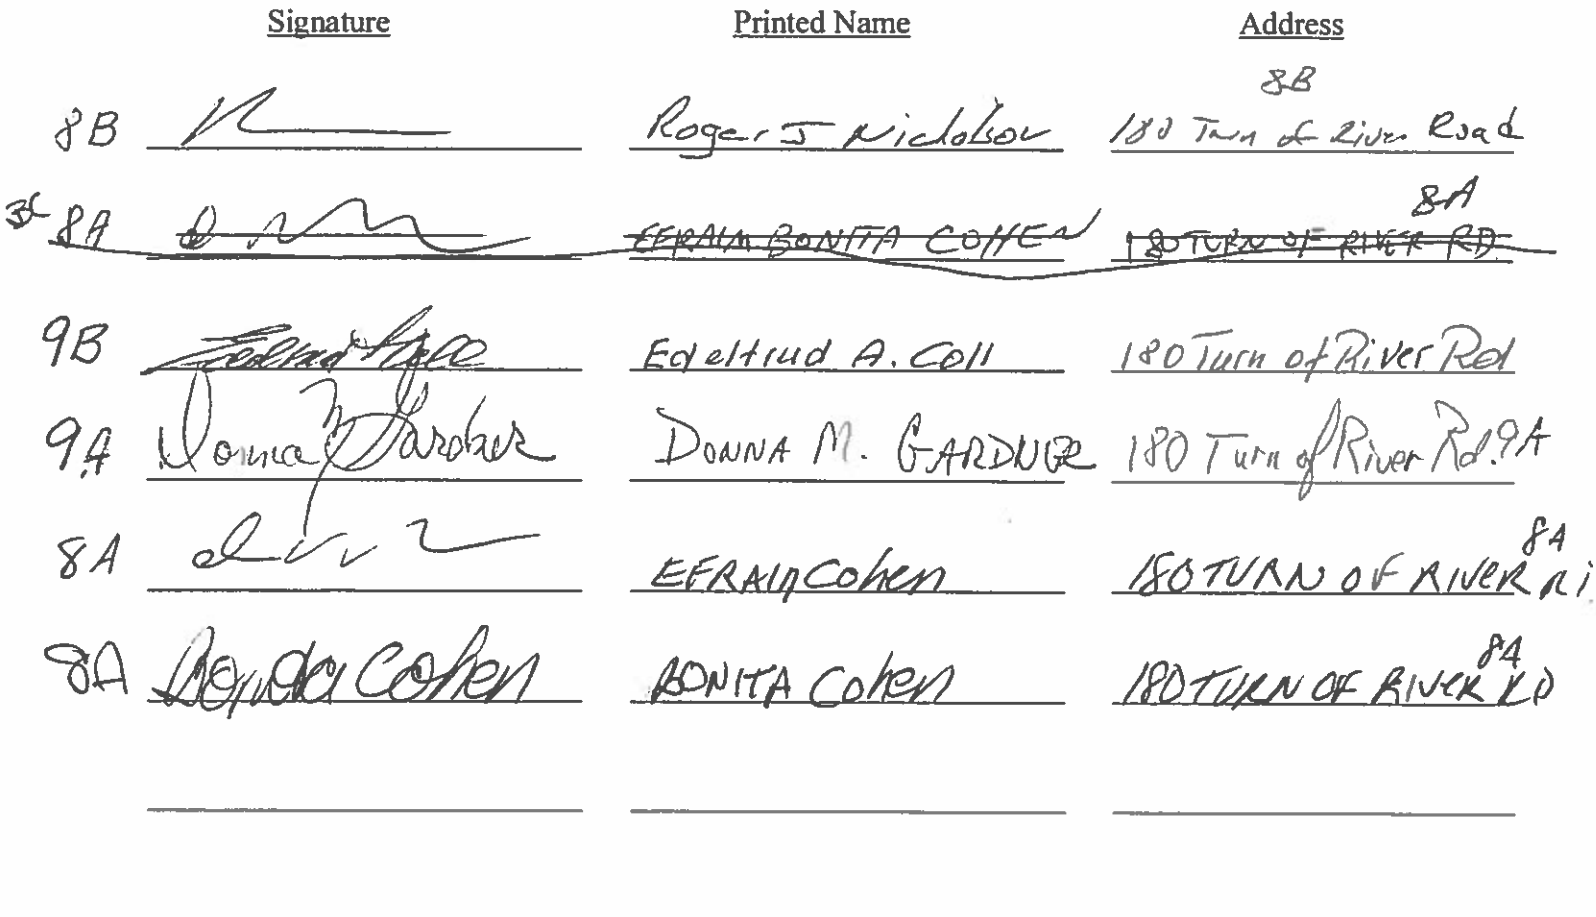 Signature Printed Name Address
8B
8B Roger J Nicholson 180 Turn of River Road
8A
8A EFRAIM BONITA COHEN 180 TURN OF RIVER RD
9B Edeltrud A. Coll 180 Turn of River Rd
9A Donna M Gardner DONNA M. GARDNER 180 Turn of River Rd. 9A
8A
8A EFRAIM Cohen 180 TURN OF RIVER
8A
8A Bonita Cohen BONITA Cohen 180 TURN OF RIVER RD